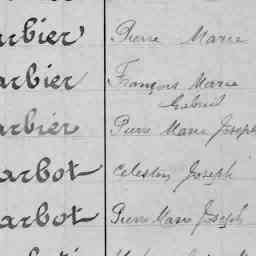 arbier Pierre Marie
arbier François Marie
Gabriel
arbier Pierre Marie Joseph
arbot Celestin Joseph
arbot Pierre Marie Joseph